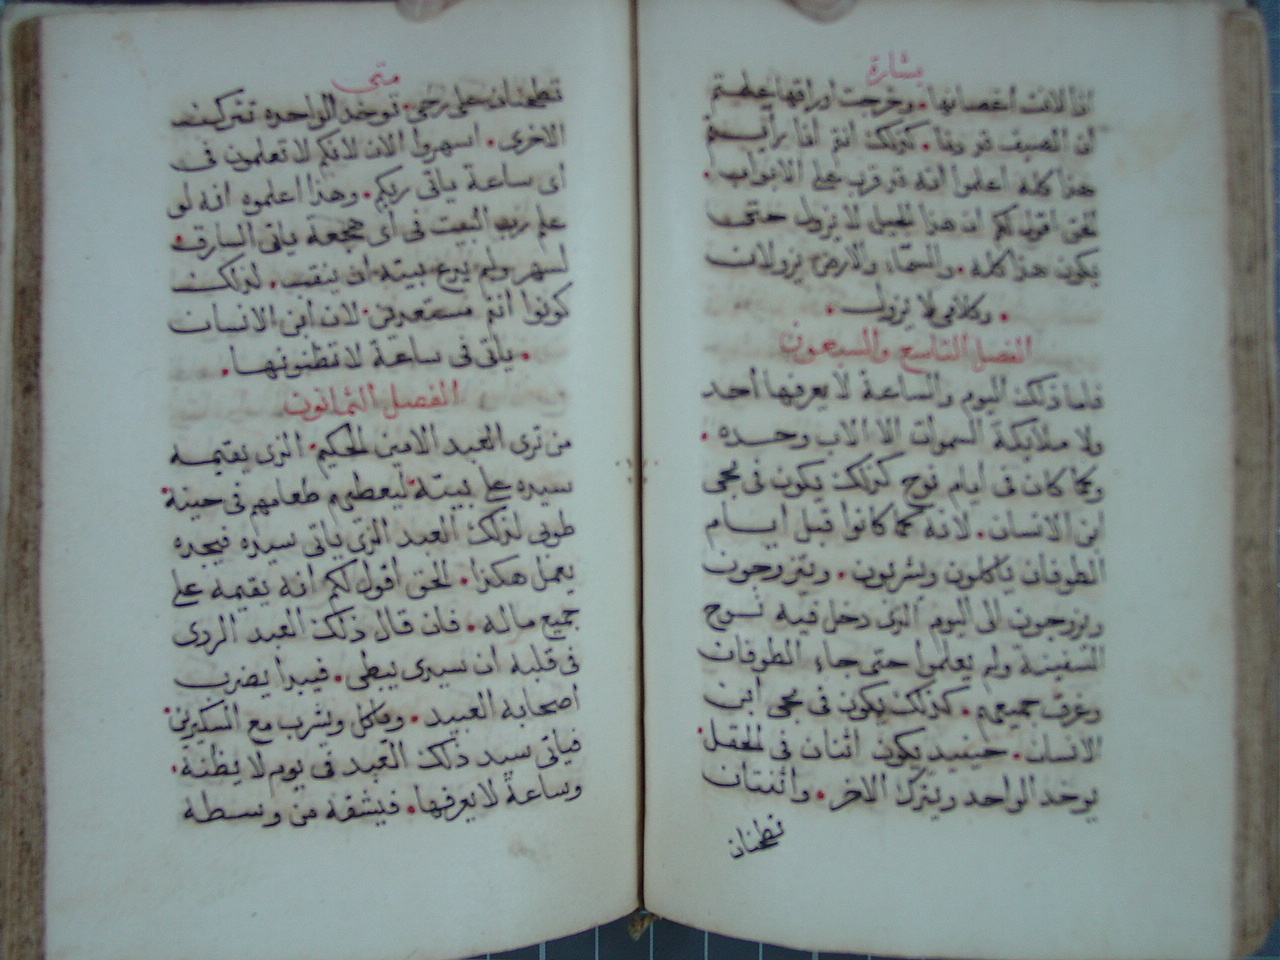 بشارة
اذا لانت اغصانها . وخرجت اوراقها علمتم
ان الصيف قد دنا . كذلك انتم اذا رأيتم
هذا كله اعلموا انه قد قرب على الابواب .
الحق اقول لكم ان هذا الجيل لا يزول حتى
يكون هذا كله . والسماء والارض يزولان
. وكلامي لا يزول .
الفصل التاسع والسبعون
فاما ذلك اليوم والساعة لا يعرفها احد
ولا ملايكة السموات الا الاب وحده .
وكما كان فى ايام نوح كذلك يكون فى مجى
ابن الانسان . لانه كما كانوا قبل ايام
الطوفان ياكلون ويشربون . ويتزوجون
ويزوجون الى اليوم الذى دخل فيه نوح
السفينة ولم يعلموا حتى جاء الطوفان
وغرق جميعهم . كذلك يكون فى مجى ابن
الانسان . حينيذ يكون اثنان فى الحقل .
يوخذ الواحد ويترك الاخر . واثنتان
تطحنان
متى
تطحنان على رحى . توخذ الواحده وتترك
الاخرى . اسهروا الان لانكم لا تعلمون فى
اى ساعة ياتى ربكم . وهذا اعلموه انه لو
علم رب البيت فى اى هجعة ياتى السارق .
لسهر ولم يدع بيته ان ينقب . لذلك
كونوا انتم مستعدين . لان ابن الانسان
. ياتى فى ساعة لا تظنونها .
الفصل الثمانون
من ترى العبد الامين الحكيم . الذى يقيمه
سيده على بيته . ليعطيهم طعامهم فى حينه .
طوبى لذلك العبد الذى ياتى سيده فيجده
يعمل هكذا . الحق اقول لكم انه يقيمه على
جميع ماله . فان قال ذلك العبد الردى
فى قلبه ان سيدى يبطى . فيبدا يضرب
اصحابه العبيد . وياكل ويشرب مع السكيرين .
فياتى سيد ذلك العبد فى يوم لا يظنه .
وساعة لا يعرفها . فيشقه من وسطه